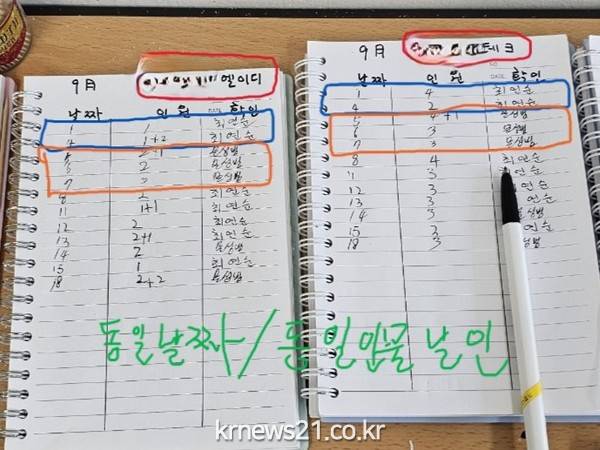 9月
엘이디
날짜 인원 확인
1 1 최연순
4 1+2 최연순
5 2+1 문성별
6 2
7 2 문성별
8 2 최연순
11 1+1 최연순
12 2 최연순
13 2+1 최연순
14 2 문성별
15 1 최연순
18 2+2 문성별
9月
테크
날짜 인원 DATE 확인
1 4 최연순
4 2 최연순
5 4+1 문성별
6 3
7 3 문성별
8 4 최연순
11 3 최연순
12 3 최연순
13 3 최연순
14 3 문성별
15 3 최연순
18 3
동일날짜/동일인물 날인
www.krnews21.co.kr